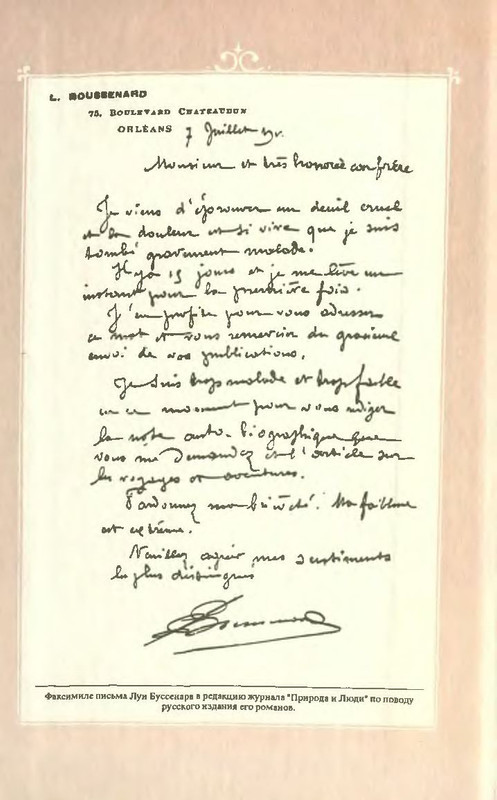 L. BOUSSENARD
75, BOULEVARD CHATEAUDUN
ORLÉANS 7 Juillet
Monsieur et très honoré confrère
Je viens d'éprouver un deuil cruel
et la douleur est si vive que je suis
tombé gravement malade.
Il y a 15 jours et je me lève un
instant pour la première fois.
J'en profite pour vous adresser
ce mot et vous remercier du gracieux
envoi de vos publications.
Je suis trop malade et trop faible
en ce moment pour vous rédiger
la note auto-biographique que
vous me demandez et l'article sur
les voyages et aventures.
Pardonnez ma brièveté. Ma faiblesse
est extrême.
Veuillez agréer mes sentiments
les plus distingués
LBoussenard
Факсимиле письма Луи Буссенара в редакцию журнала "Природа и Люди" по поводу
русского издания его романов.